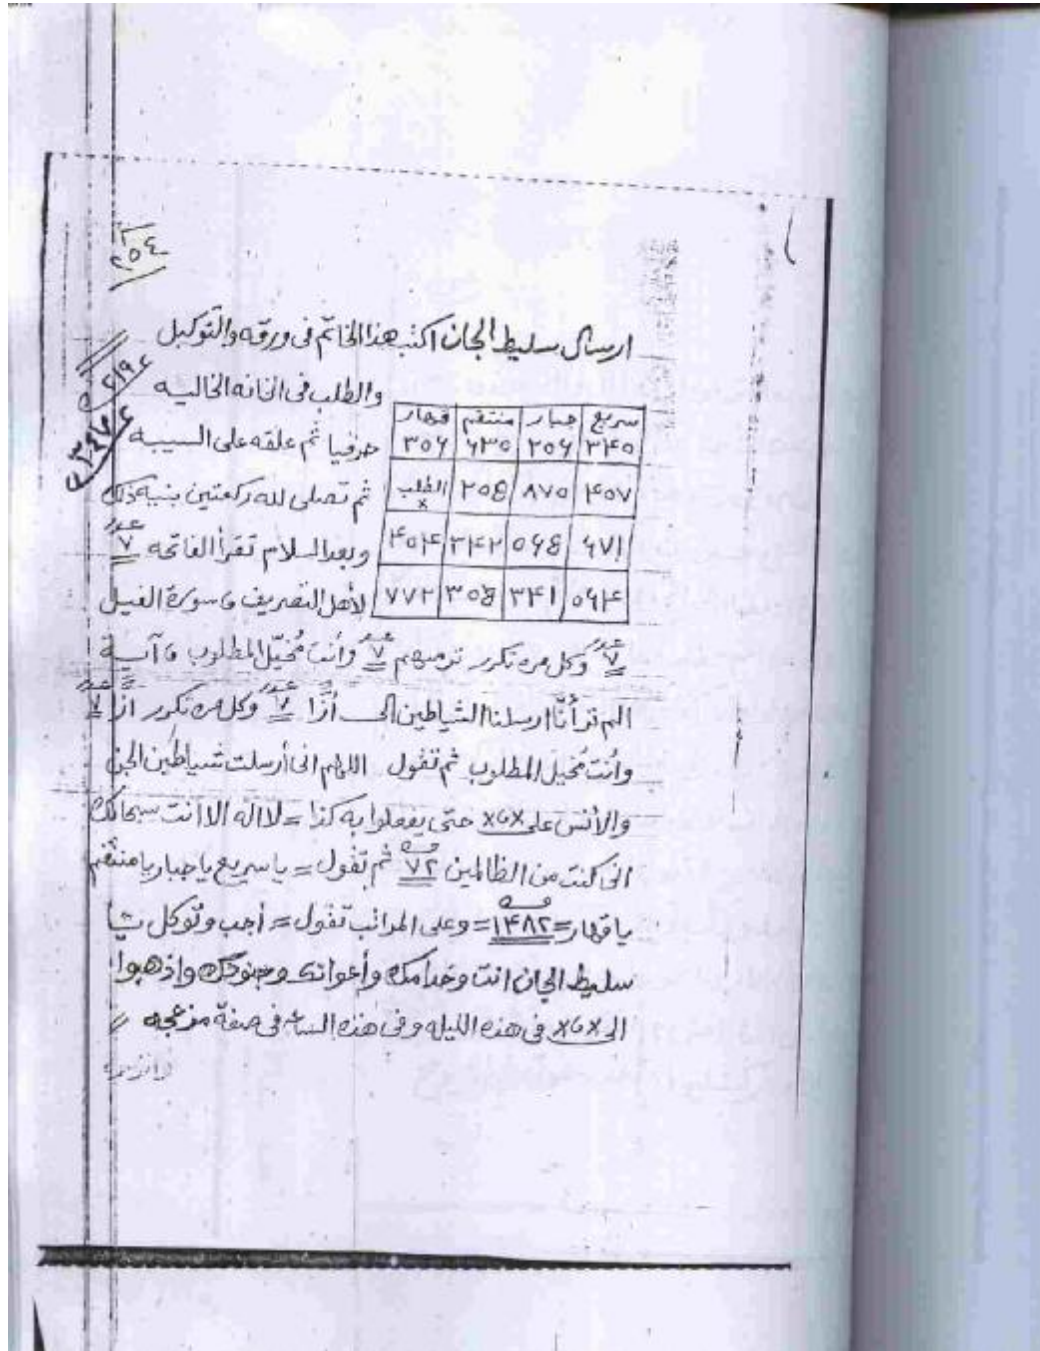 ٢٥٤
ارسال سليط الجان اكتب هذا الخاتم فى ورقه والتوكيل
والطلب فى الخانه الخاليه
حرفيا ثم علقه على السيبه
ثم تصلى لله ركعتين بنيه ذلك
وبعد السلام تقرأ الفاتحه ٧ عدد
لأهل التصريف ٩ سورة الفيل
سريع جبار منتقم قهار
٣۴٥ ٢٥۶ ۶٣٥ ٣٥۶
۴٥٧ ٨٧٥ ٢٥٤ الطلب x
۶٧١ ٥۶٤ ٣۴٢ ۴٥۴
٥۶۴ ٣۴١ ٣٥٤ ٧٧٢
٧ عدد وكل مره تكرر ترميهم ٧ عدد وأنت مُخيّل المطلوب ٩ آية
الم تر أنّا ارسلنا الشياطين الى أزّا ٧ عدد وكل مره تكرر ازّا ٧ عدد
وأنت مُخيل المطلوب ثم تقول اللهم انى أرسلت شياطين الجن
والأنس على x٩x حتى يفعلوا به كذا = لا اله الا انت سبحانك
انى كنت من الظالمين ٧٢ مره ثم تقول = يا سريع يا جبار يا منتقم
يا قهار = ١۴٨٢ مره = وعلى المراتب تقول = أجب وتوكل يا
سليط الجان انت وخدامك وأعوانك وجنودك واذهبوا
الى x٩x فى هذه الليله وفى هذه الساعه فى صفة مزعجه